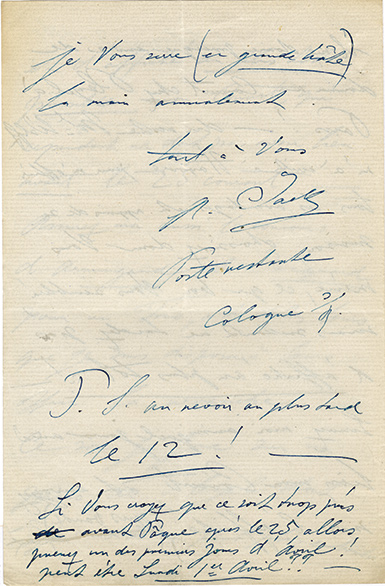 je vous serre (en grande hâte)
la main amicalement.
tout à vous
Poste restante
Cologne
P. S. au revoir au plus tard
le 12 !
Si vous croyez que ce soit trop près
avant Pâque après le 25 allors
prenez un des premiers jours d'Avril !
peut être Lundi 1er Avril ??